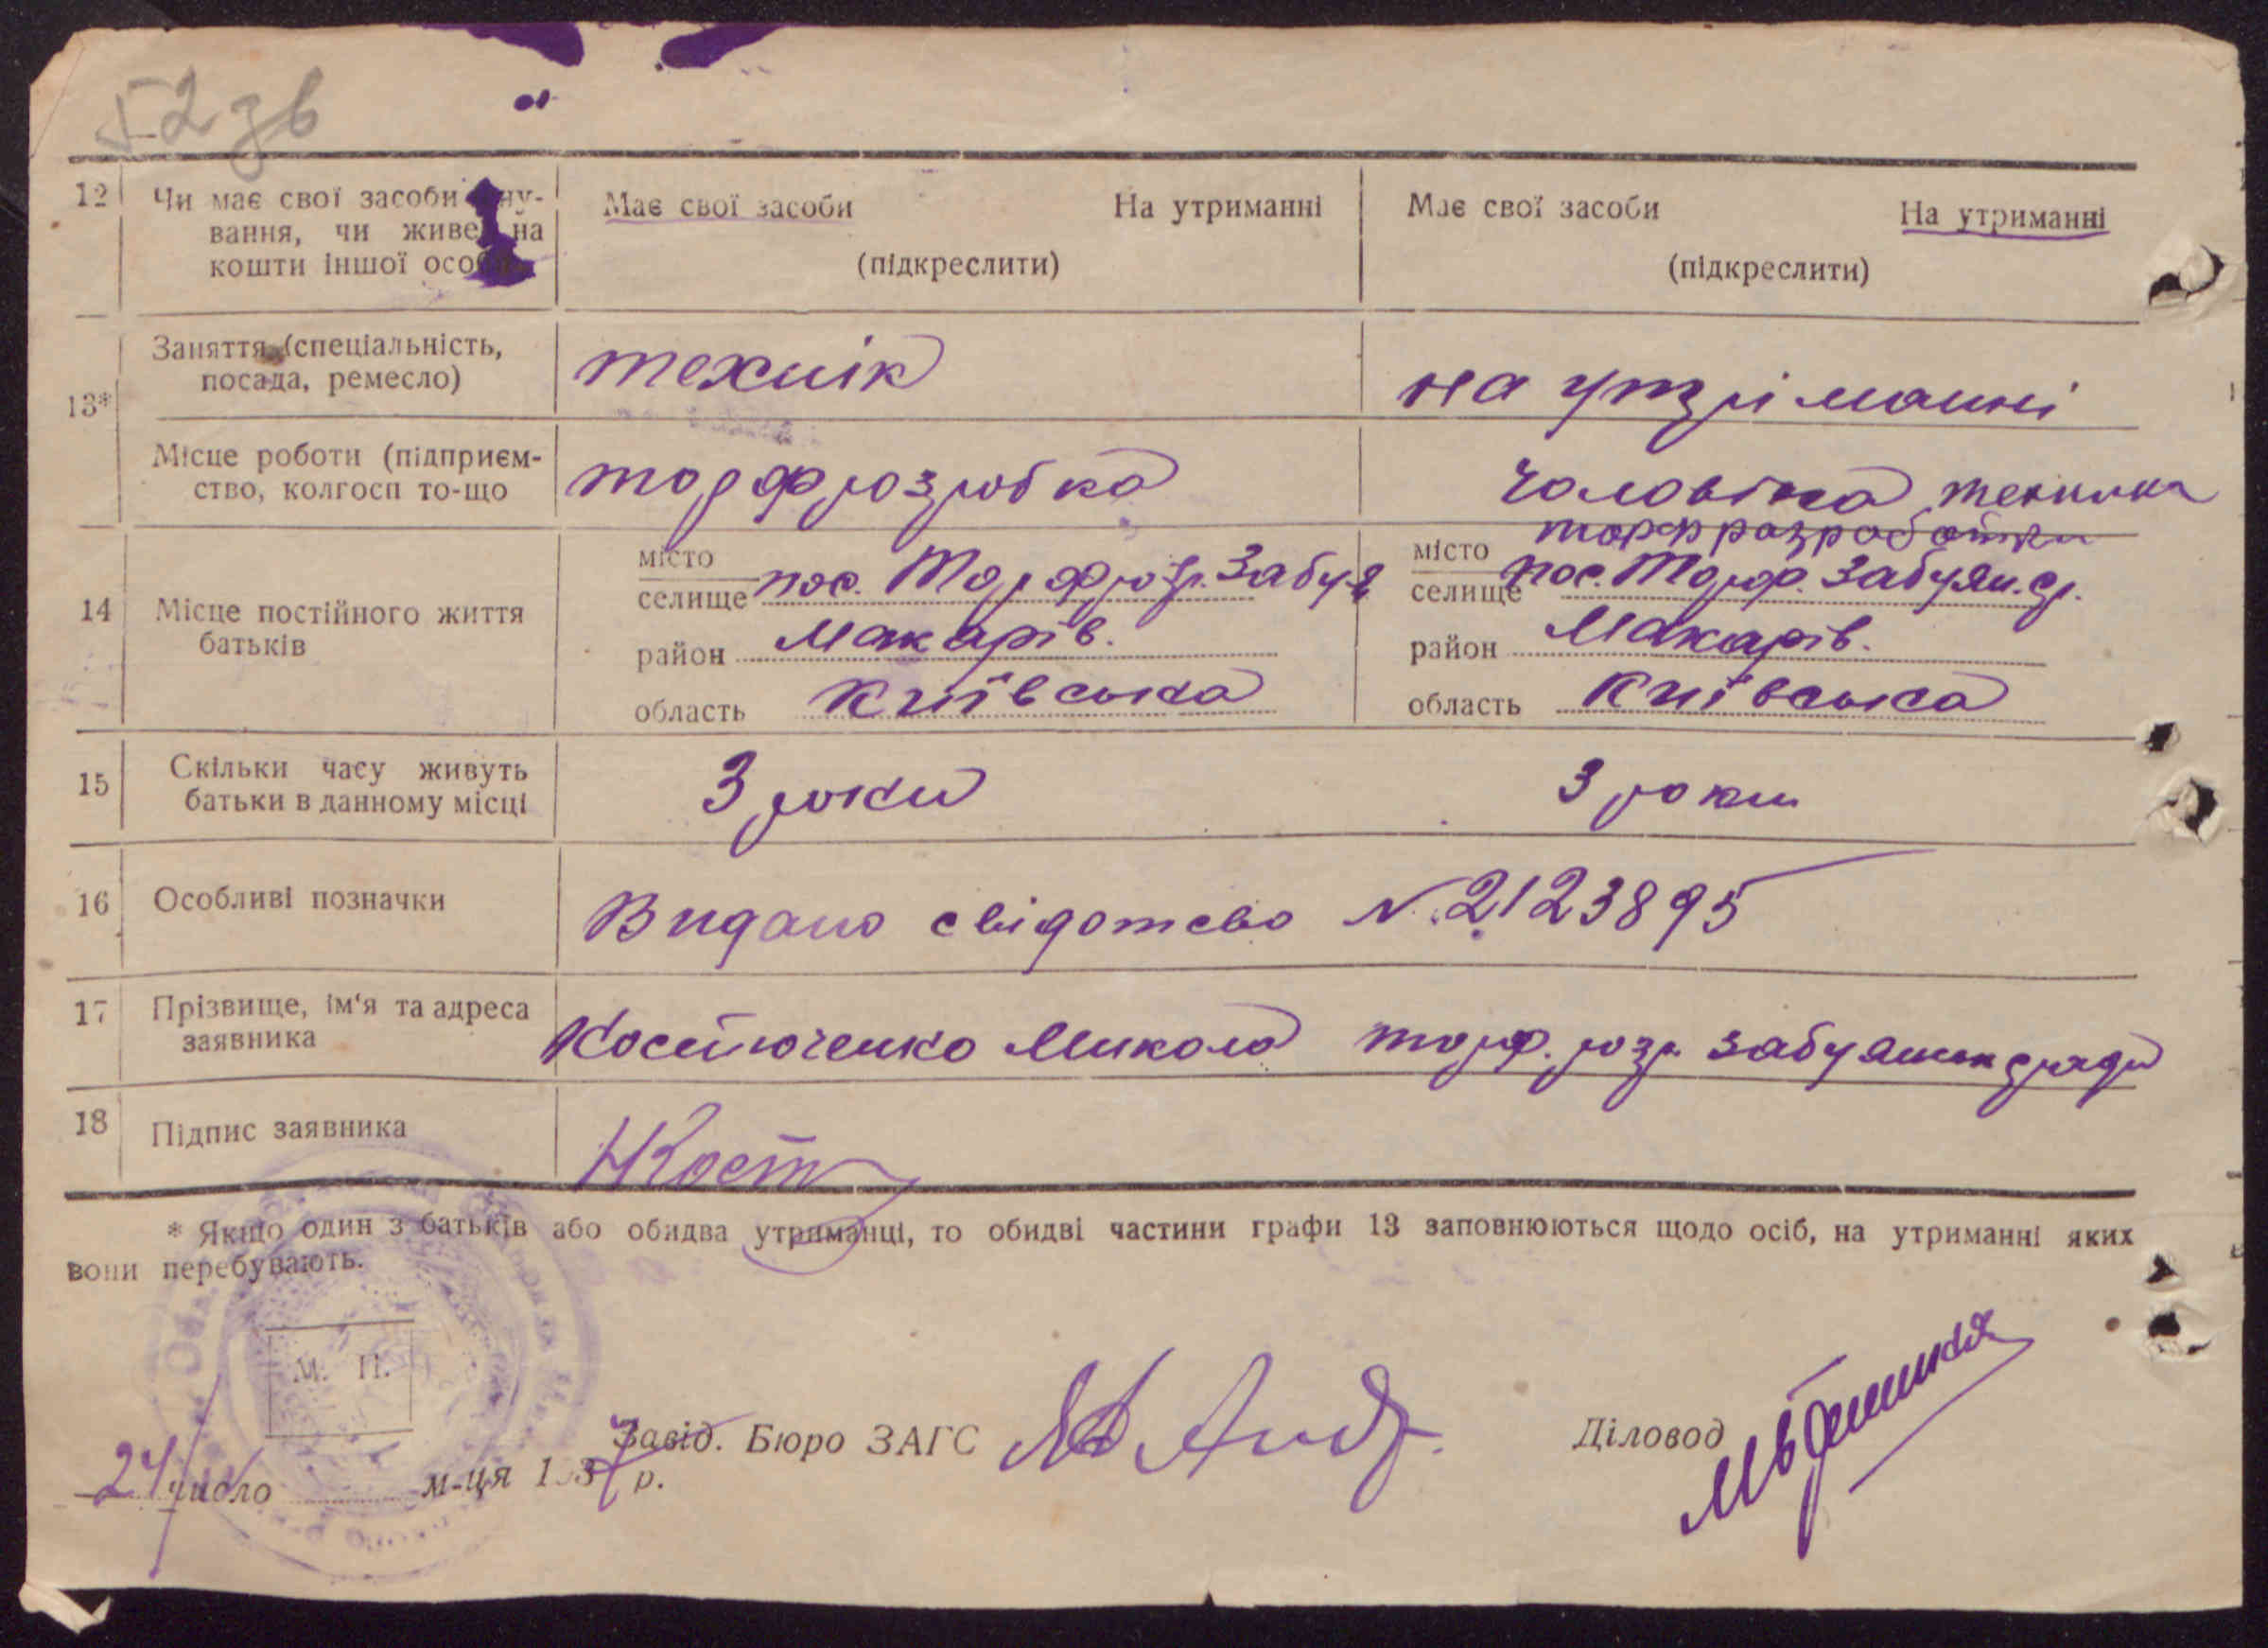 52 зв
12 Чи має свої засоби існу-
вання, чи живе на
кошти іншої особи
Має свої засоби На утриманні
(підкреслити)
Має свої засоби На утриманні
(підкреслити)
13*
Заняття (спеціальність,
посада, ремесло)
технік
на утріманні
Місце роботи (підприєм-
ство, колгосп то-що
торфрозробка
чоловіка техника
торфразработки
14 Місце постійного життя
батьків
місто
селище пос. Торфрозр. Забуя
район Макарів.
область Київська
місто
селище пос. Торф. Забуян. ср.
район Макарів.
область Київська
15 Скільки часу живуть
батьки в данному місці
3 роки 3 роки
16 Особливі позначки
Видано свідотство N. 2123895
17 Прізвище, ім'я та адреса
заявника
Костюченко Микола торф. розр. Забуянск сради
18 Підпис заявника
НКост
* Якщо один з батьків або обидва утриманці, то обидві частини графи 13 заповнюються щодо осіб, на утриманні яких
вони перебувають.
М. П.
Завід. Бюро ЗАГС
Діловод
24 число м-ця 1937 р.